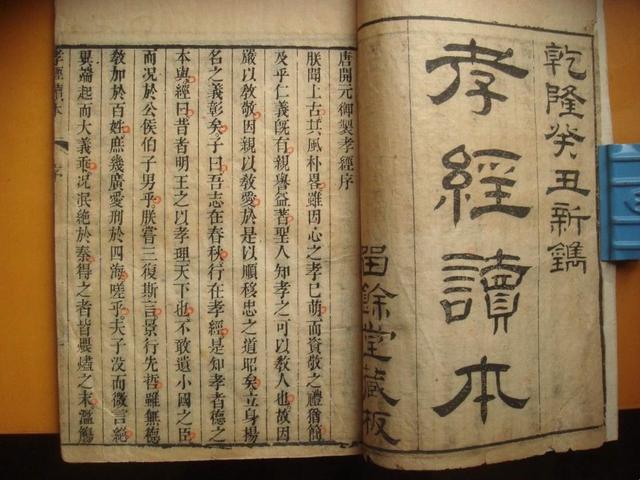 乾隆癸丑新鐫
孝經讀本
留餘堂藏板
唐開元御製孝經序
朕聞上古其風朴畧雖因心之孝巳萌而資敬之禮猶簡
及乎仁義旣有親譽益著聖人知孝之可以教人也故因
嚴以教敬因親以教愛於是以順移忠之道昭矣立身揚
名之義彰矣子曰吾志在春秋行在孝經是知孝者德之
本與經曰昔者明王之以孝理天下也不敢遺小國之臣
而況於公侯伯子男乎朕嘗三復斯言景行先哲雖無德
教加於百姓庶幾廣愛刑於四海嗟乎夫子没而微言絕
異端起而大義乖況泯絕於秦得之者皆煨燼之末濫觴
孝經讀本
序